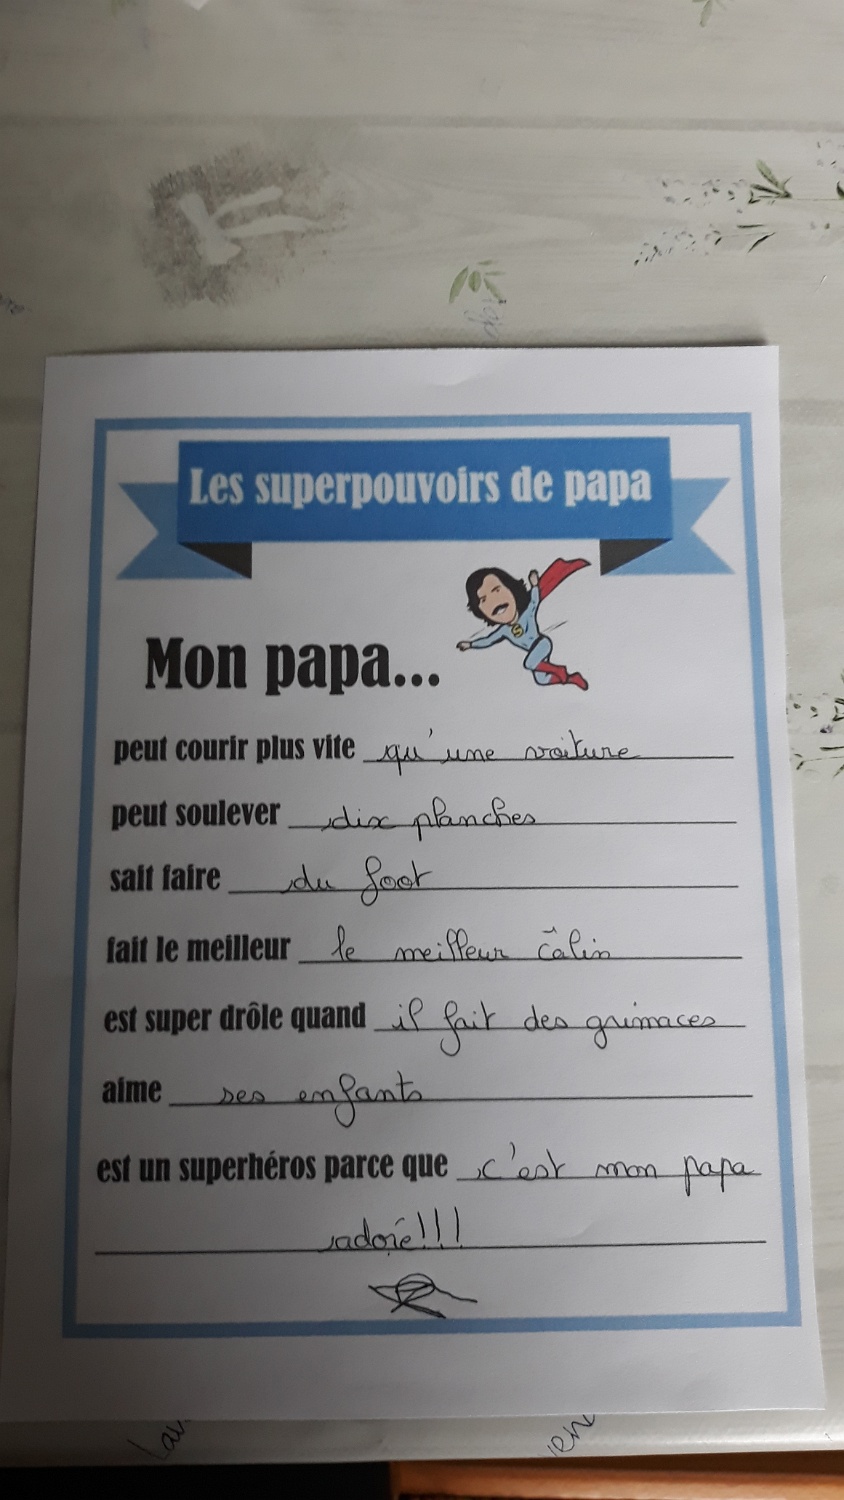 Les superpouvoirs de papa
Mon papa...
peut courir plus vite qu'une voiture
peut soulever dix planches
sait faire du foot
fait le meilleur le meilleur câlin
est super drôle quand il fait des grimaces
aime ses enfants
est un superhéros parce que c'est mon papa
adoré!!!